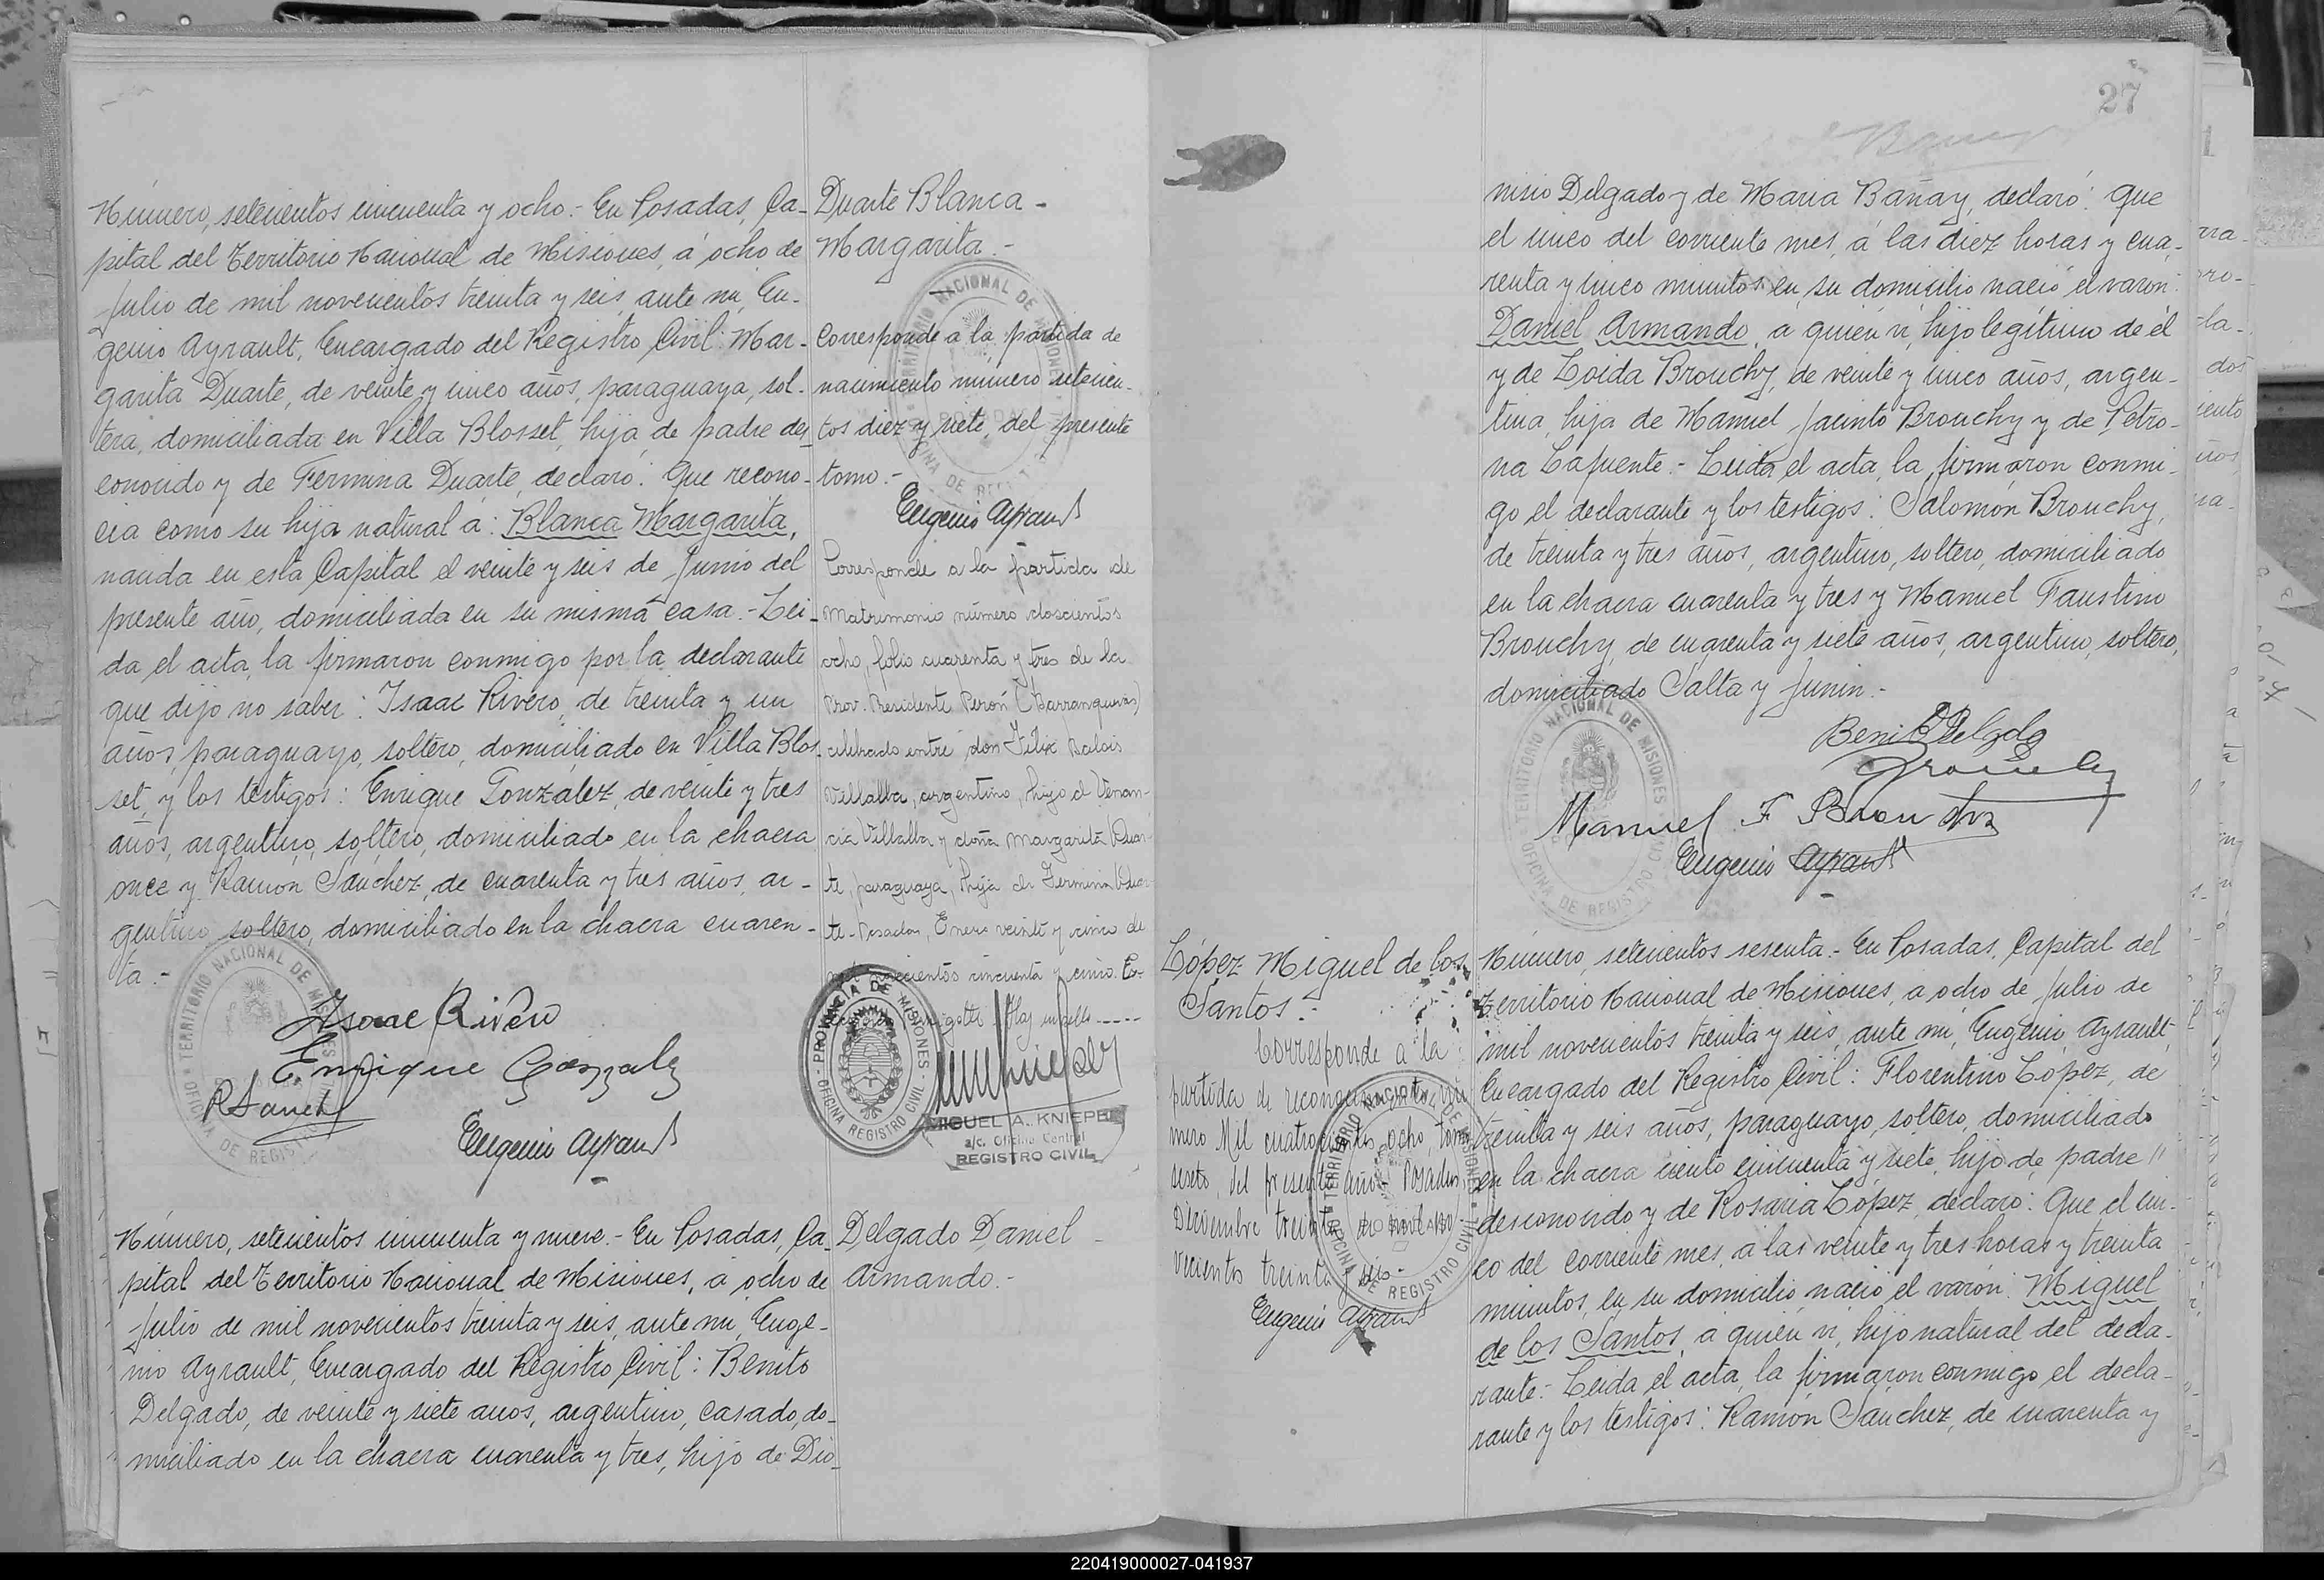 Número, setecientos cincuenta y ocho.- En Posadas, Ca-
pital del Territorio Nacional de Misiones, á ocho de
Julio de mil novecientos treinta y seis, ante mi, Eu-
genio Ayrault, Encargado del Registro Civil: Mar-
garita Duarte, de veinte y cinco años, paraguaya, sol-
tera, domiciliada en Villa Blosset, hija de padre des-
conocido y de Fermina Duarte, declaró: Que recono-
cia como su hija natural á: Blanca Margarita,
nacida en esta Capital el veinte y seis de Junio del
presente año, domiciliada en su misma casa.- Lei-
da el acta, la firmaron conmigo por la declarante
que dijo no saber: Isaac Rivero, de treinta y un
años, paraguayo, soltero, domiciliado en Villa Blos-
set, y los testigos: Enrique González, de veinte y tres
años, argentino, soltero, domiciliado en la chacra
once y Ramón Sánchez, de cuarenta y tres años, ar-
gentino, soltero, domiciliado en la chacra cuaren-
ta.-
Isaac Rivero
Enrique Gonzalez
R Sanch
Eugenio Ayrault
Duarte Blanca
Margarita.-
Corresponde a la partida de
nacimiento número setecien-
tos diez y siete, del presente
tomo.-
Eugenio Ayrault
Corresponde a la partida de
Matrimonio número doscientos
ocho, folio cuarenta y tres de la
Prov. Presidente Perón (Barranqueras)
celebrado entre don Félix
Villalba, argentino, hijo d Venan-
cia Villalba y doña Margarita Duar-
te, paraguaya, hija de Fermina Duar-
te.- Posadas, Enero veinte y cinco de
mil novecientos cincuenta y cinco.
Hay un sello----
PROVINCIA DE MISIONES
OFICINA REGISTRO CIVIL
MIGUEL A. KNIEPBE
a/c. Oficina Central
REGISTRO CIVIL
TERRITORIO NACIONAL DE MISIONES
OFICINA DE REGISTRO CIVIL
Número, setecientos cincuenta y nueve.- En Posadas, Ca-
pital del Territorio Nacional de Misiones, á ocho de
Julio de mil novecientos treinta y seis, ante mi, Euge-
nio Ayrault, Encargado del Registro Civil: Benito
Delgado, de veinte y siete años, argentino, casado, do-
miciliado en la chacra cuarenta y tres, hijo de Dio-
Delgado Daniel
Armando.-
27
nisio Delgado y de Maria Bañay, declaró: que
el cinco del corriente mes, á las diez horas y cua-
renta y cinco minutos en su domicilio nació el varón:
Daniel Armando, á quién ví, hijo legítimo de él
y de Loida Brouchy, de veinte y cinco años, argen-
tina, hija de Manuel Jacinto Brouchy y de Petro-
na Lafuente.- Leida el acta, la firmaron conmi-
go el declarante y los testigos: Salomón Brouchy,
de treinta y tres años, argentino, soltero, domiciliado
en la chacra cuarenta y tres y Manuel Faustino
Brouchy, de cuarenta y siete años, argentino, soltero,
domiciliado Salta y Junin.-
Benito Delgado
Brouchy
Manuel F Brouchy
Eugenio Ayrault
TERRITORIO NACIONAL DE MISIONES
OFICINA DE REGISTRO CIVIL
López Miguel de los
Santos.-
Corresponde a la
partida de reconocimiento nú
mero Mil cuatrocientos ocho, tomo
sexto, del presente año.- Posadas,
Diciembre treinta de mil no-
vecientos treinta y seis.-
Eugenio Ayrault
TERRITORIO NACIONAL DE MISIONES
OFICINA DE REGISTRO CIVIL
Número, setecientos sesenta.- En Posadas, Capital del
Territorio Nacional de Misiones, a ocho de Julio de
mil novecientos treinta y seis, ante mi, Eugenio Ayrault,
Encargado del Registro Civil: Florentino López, de
treinta y seis años, paraguayo, soltero, domiciliado
en la chacra ciento cincuenta y siete, hijo de padre "
desconocido y de Rosaria López, declaró: Que el cin-
co del corriente mes, a las veinte y tres horas y treinta
minutos, en su domicilio nació el varón: Miguel
de los Santos, a quién ví, hijo natural del decla-
rante.- Leida el acta, la firmaron conmigo el decla-
rante y los testigos: Ramón Sánchez, de cuarenta y
220419000027-041937